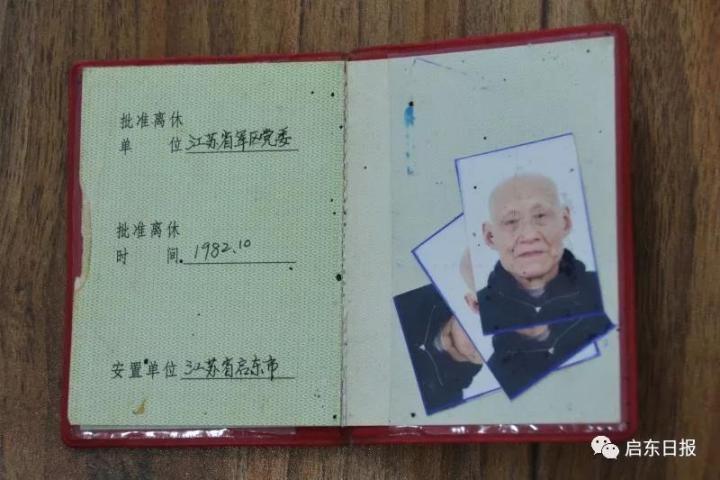 批准离休
单 位 江苏省军区党委
批准离休
时 间 1982.10
安置单位 江苏省启东市
启东日报